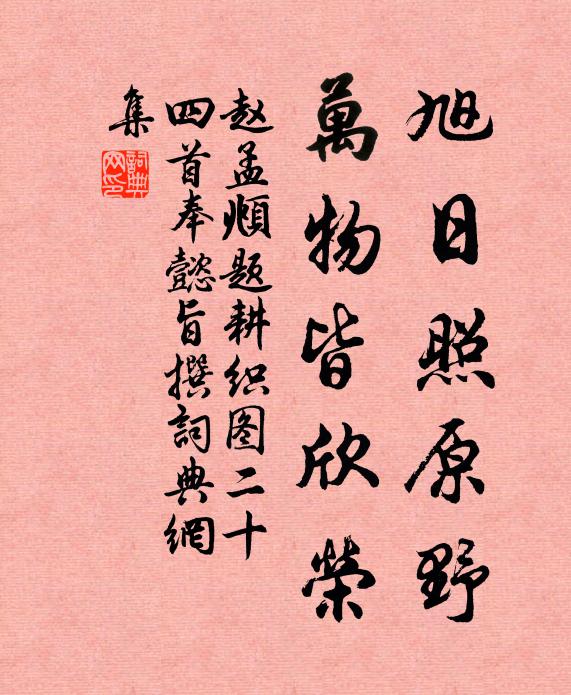 旭日照原野
萬物皆欣榮
赵孟頫题耕织图二十
四首奉懿旨撰詞典網
集
詞典
网印